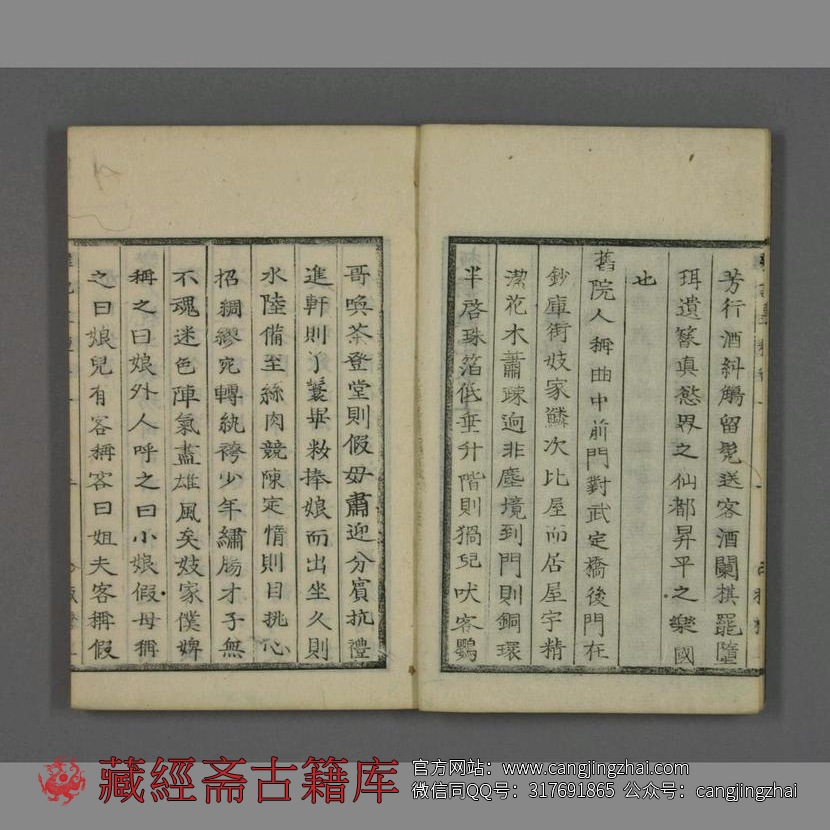 芳行酒糾觴留髡送客酒闌棋罷墮
珥遺簪真慾界之仙都昇平之樂國
也
舊院人稱曲中前門對武定橋後門在
鈔庫街妓家鱗次比屋而居屋宇精
潔花木蕭疎迥非塵境到門則銅環
半啓珠箔低垂升階則猧兒吠客鸚
哥喚茶登堂則假母肅迎分賓抗禮
進軒則丫鬟畢妝捧娘而出坐久則
水陸備至絲肉競陳定情則目挑心
招綢繆宛轉紈袴少年繡腸才子無
不魂迷色陣氣盡雄風矣妓家僕婢
稱之曰娘外人呼之曰小娘假母稱
之曰娘兒有客稱客曰姐夫客稱假
藏經斋古籍库
官方网站：www.cangjingzhai.com
微信同QQ号：317691865 公众号：cangjingzhai